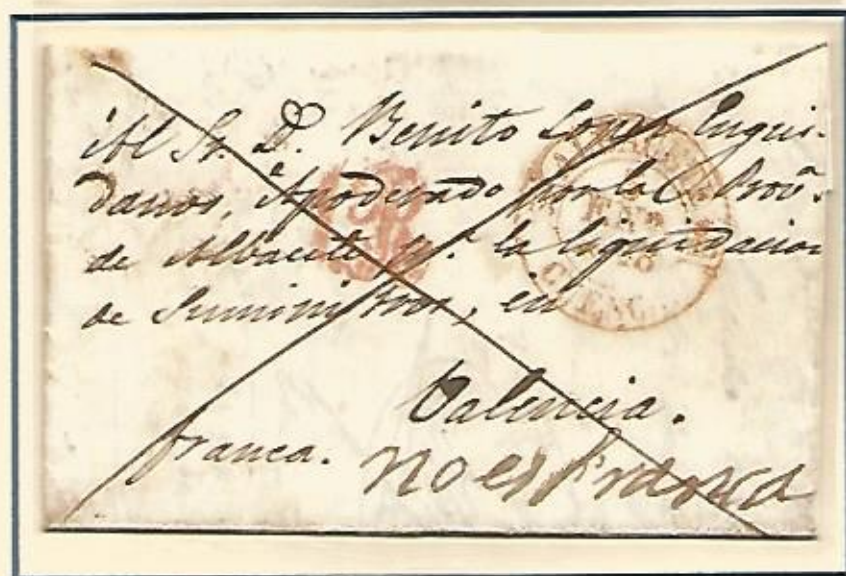 Al Sr. D. Benito Lopez Engui-
danos, Apoderado por la Provª.
de Albacete pª. la liquidacion
de Suministros, en
Valencia.
franca.
no es franca